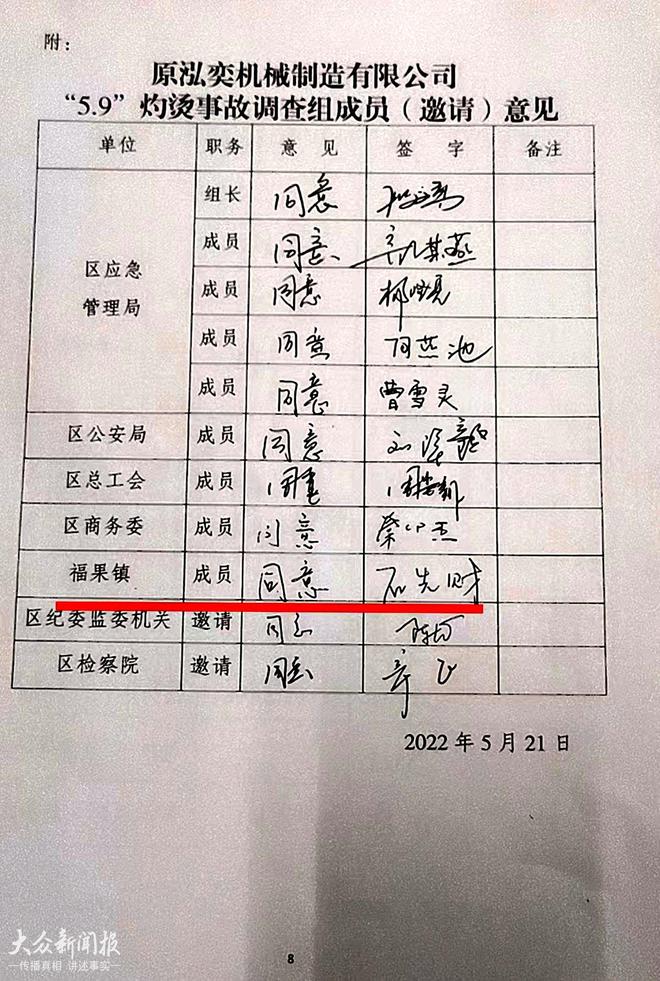 附：
原泓奕机械制造有限公司
“5.9”灼烫事故调查组成员（邀请）意见
单位 职务 意见 签字 备注
区应急管理局 组长 同意
成员 同意
成员 同意
成员 同意
成员 同意 曹雪灵
区公安局 成员 同意
区总工会 成员 同意
区商务委 成员 同意
福果镇 成员 同意 石先财
区纪委监委机关 邀请 同意
区检察院 邀请 同意 辛飞
2022年5月21日
大众新闻报
传播真相 讲述事实
8